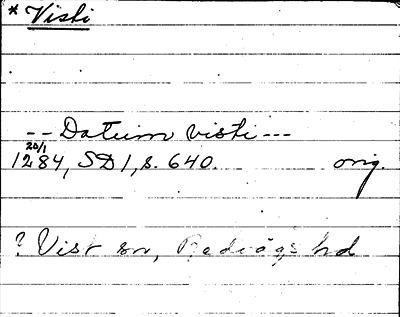 * Visti
-- Datum visti ---
20/1
1284, SD1, s. 640. orig.
? Vist sn, Redvägs hd